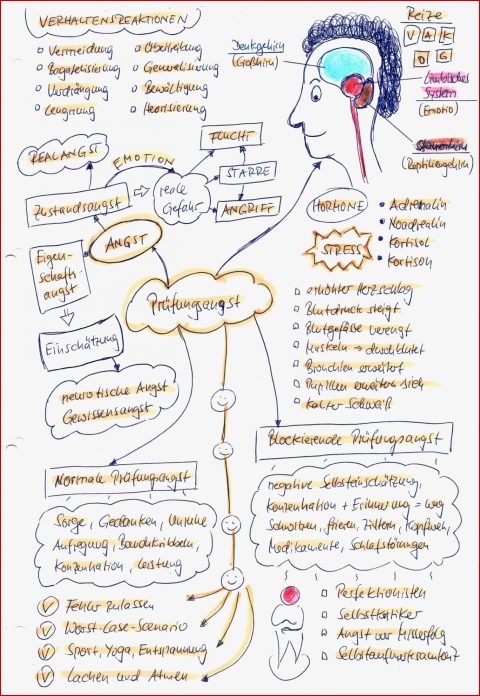 VERHALTENSREAKTIONEN
Vermeidung
Bagatelisierung
Verdrängung
Leugnung
Übertreibung
Generalisierung
Bewältigung
Heorisierung
Denkgehirn
(Großhirn)
Reize
V A K
O G
Limbisches
System
(Emotio)
Stammhirn
(Reptiliengehirn)
REALANGST
EMOTION
Zustandsangst
reale
Gefahr
FLUCHT
STARRE
ANGRIFF
ANGST
Eigen-
schafts-
angst
Einschätzung
neurotische Angst
Gewissensangst
Prüfungsangst
HORMONE
STRESS
Adrenalin
Noadrealin
Kortisol
Kortison
erhöhter Herzschlag
Blutdruck steigt
Blutgefäße verengt
Muskeln → durchblutet
Bronchien erweitert
Pupillen erweitern sich
Kalter Schweiß
Normale Prüfungsangst
Sorge, Gedanken, Unruhe
Aufregung, Bauchkribbeln,
Konzentration, Leistung
Blockierende Prüfungsangst
negative Selbsteinschätzung,
Konzentration + Erinnerung = weg
Schwitzen, frieren, Zittern, Kopfweh,
Medikamente, Schlafstörungen
Fehler zulassen
Worst-Case-Scenario
Sport, Yoga, Entspannung
Lachen und Atmen
Perfektionisten
Selbstkritiker
Angst vor Misserfolg
Selbstaufmerksamkeit